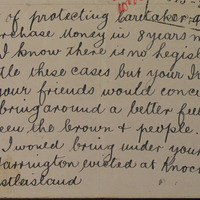 of protecting Caretaker
rchase money in 8 years
I know there is no Legisl
tle these cases but your
your friends would conci
bring around a better feel
een the Crown & people.
I would bring under your
arrington evicted at Knock
stleisland